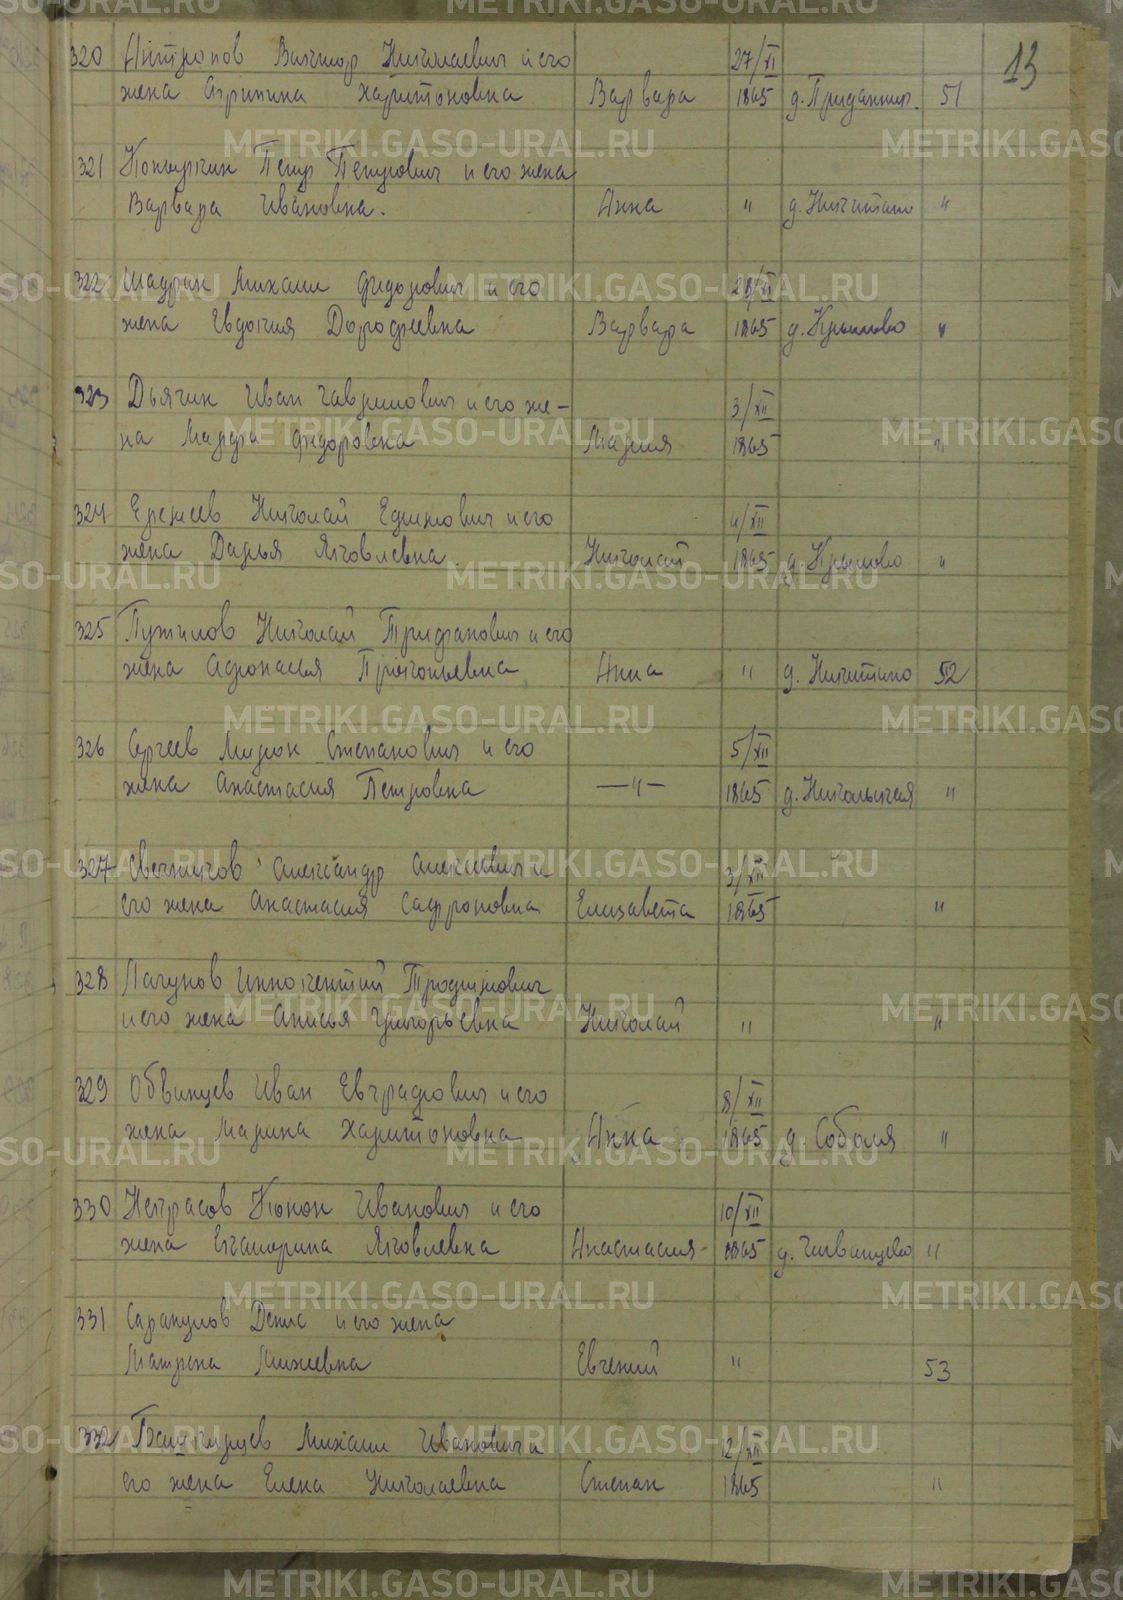 13
320 Антропов Виктор Николаевич и его 27/XI
жена Агрипина Харитоновна Варвара 1865 д. Приданник. 51
321 Петр Петрович и его жена
Варвара Ивановна. Анна " д. Никитино "
322 Шадрин Михаил Федорович и его 28/XI
жена Евдокия Дорофеевна Варвара 1865 д. Крылово "
323 Дьячин Иван Гаврилович и его же- 3/XII
на Марфа Федоровна Мария 1865 "
324 Ержеев Николай Едимович и его 4/XII
жена Дарья Яковлевна. Николай 1865 д. Крылово "
325 Пужилов Николай Трифанович и его
жена Афонасья Прокопьевна Анна " д. Никитино 52
326 Сергеев Мирон Степанович и его 5/XII
жена Анастасия Петровна —"— 1865 д. Никольская "
327 Александр Алексеевич и 3/XII
его жена Анастасия Сафроновна Елизавета 1865 "
328 Лагунов Иннокентий Тродимович
и его жена Анисья Григорьевна Николай " "
329 Обвинцев Иван Евграфович и его 8/XII
жена Марина Харитоновна Анна 1865 д. Соболя "
330 Некрасов Конон Иванович и его 10/XII
жена Екатерина Яковлевна Анастасия 1865 д. Чивинцево "
331 Сарапулов Денис и его жена
Матрена Михеевна Евгений " 53
332 Михаил Иванович и 12/XII
его жена Елена Николаевна Степан 1865 "
METRIKI.GASO-URAL.RU